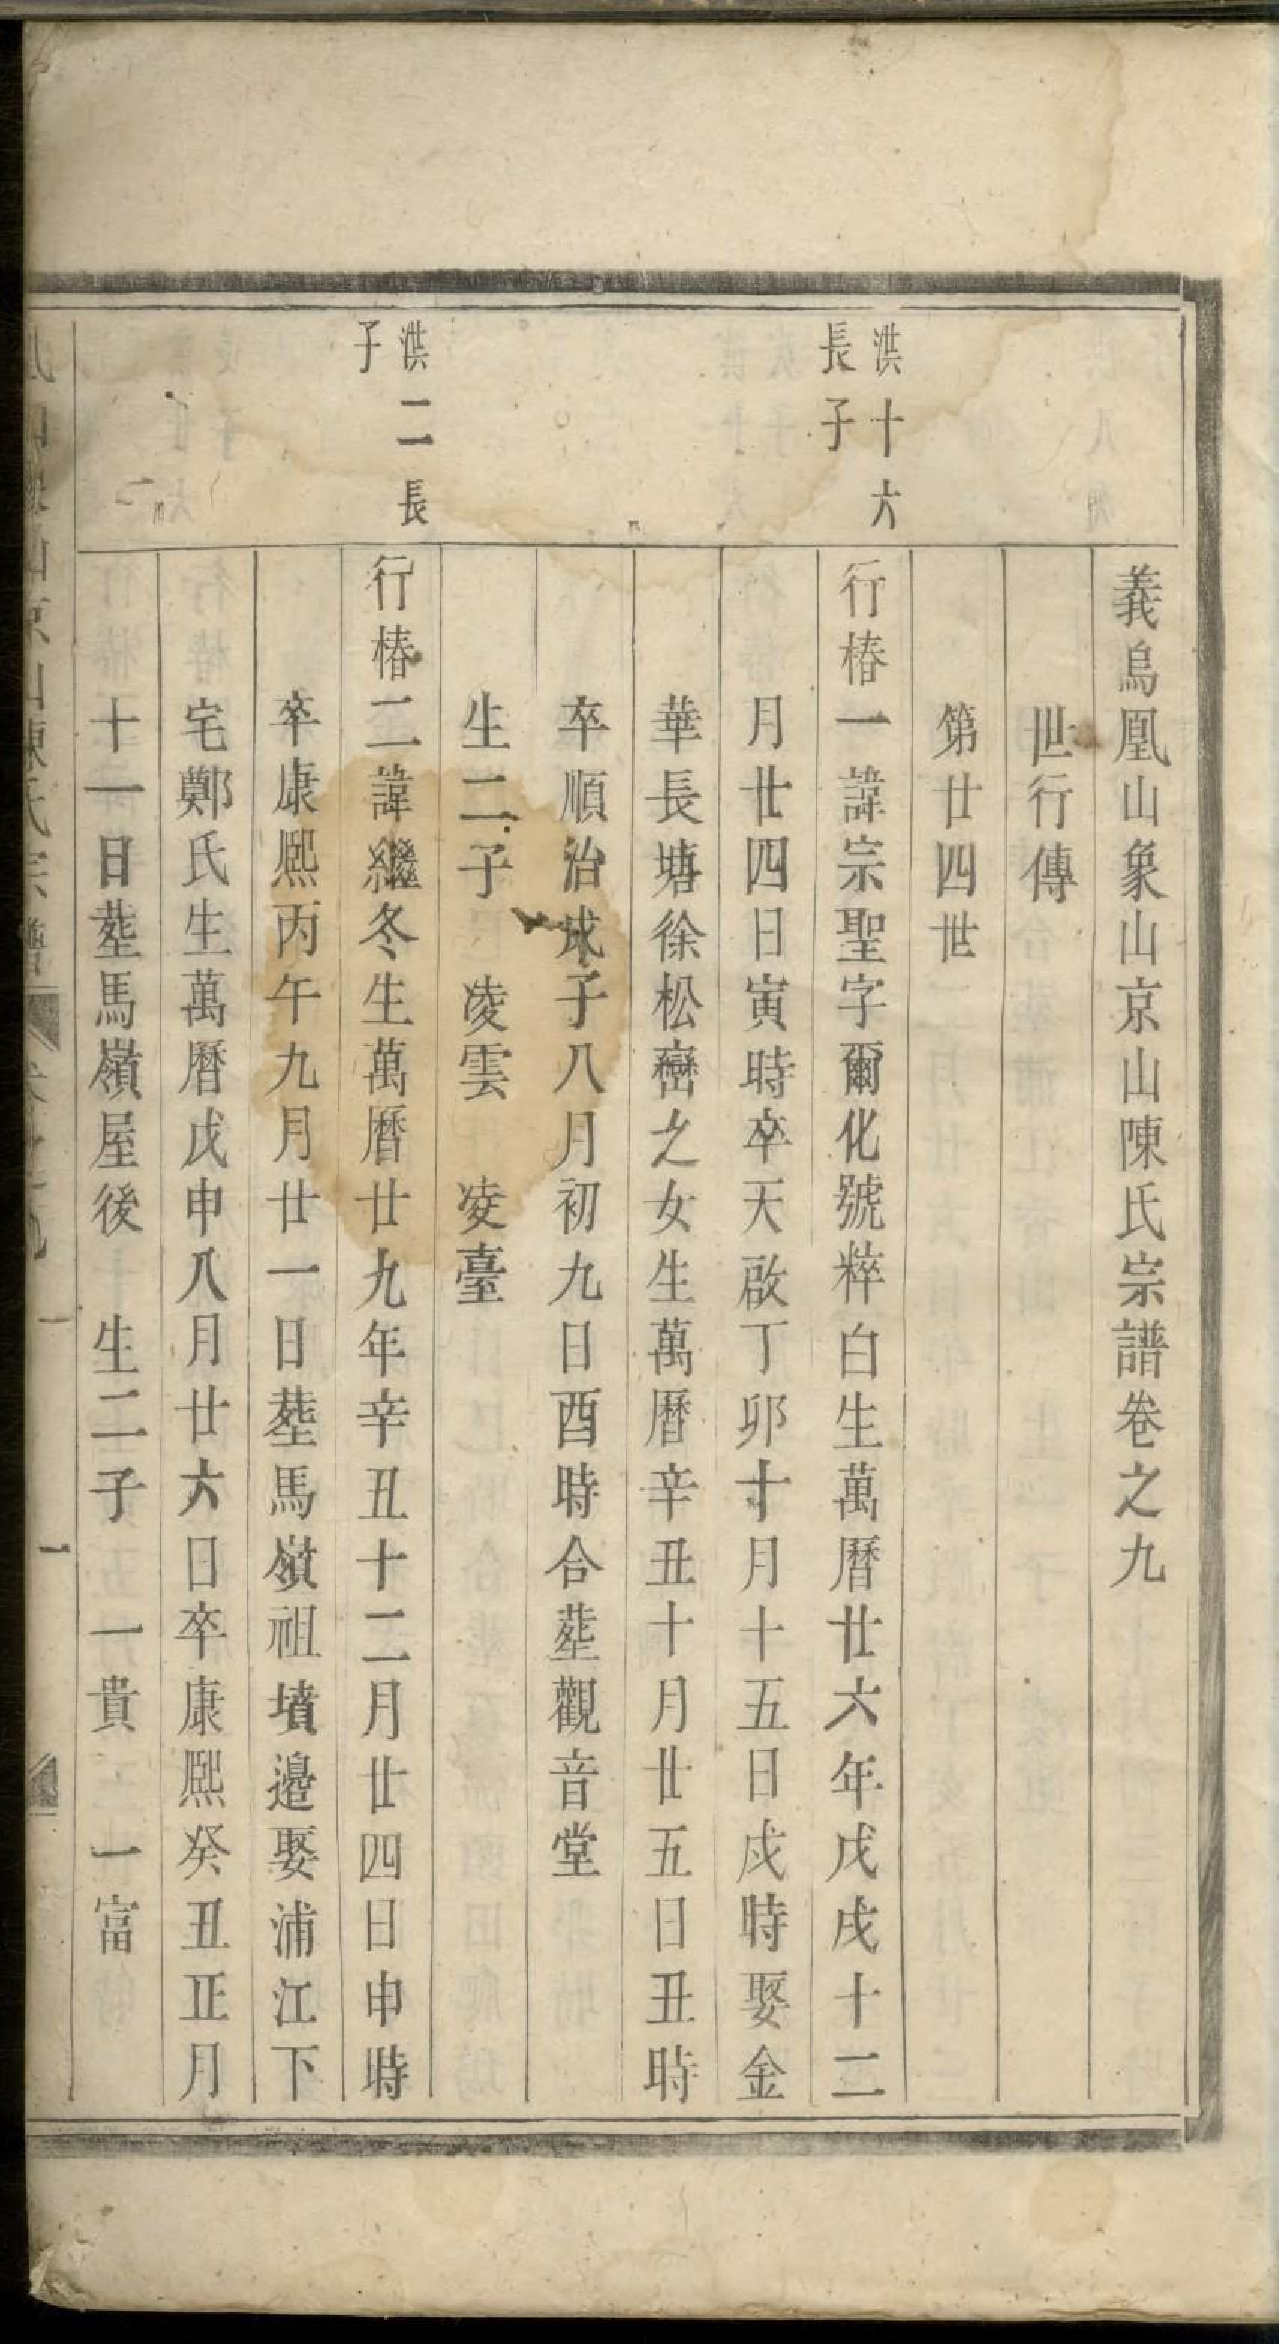 義烏凰山象山京山陳氏宗譜卷之九
世行傳
第廿四世
洪十六
長子
行椿一諱宗聖字爾化號粹白生萬曆廿六年戊戌十二
月廿四日寅時卒天啟丁卯十月十五日戌時娶金
華長塘徐松巒之女生萬曆辛丑十月廿五日丑時
卒順治戊子八月初九日酉時合塟觀音堂
生二子 凌雲 凌臺
洪二長
子
行椿二諱繼冬生萬曆廿九年辛丑十二月廿四日申時
卒康熙丙午九月廿一日塟馬嶺祖墳邉娶浦江下
宅鄭氏生萬曆戊申八月廿六日卒康熙癸丑正月
十一日塟馬嶺屋後 生二子 一貴 一富